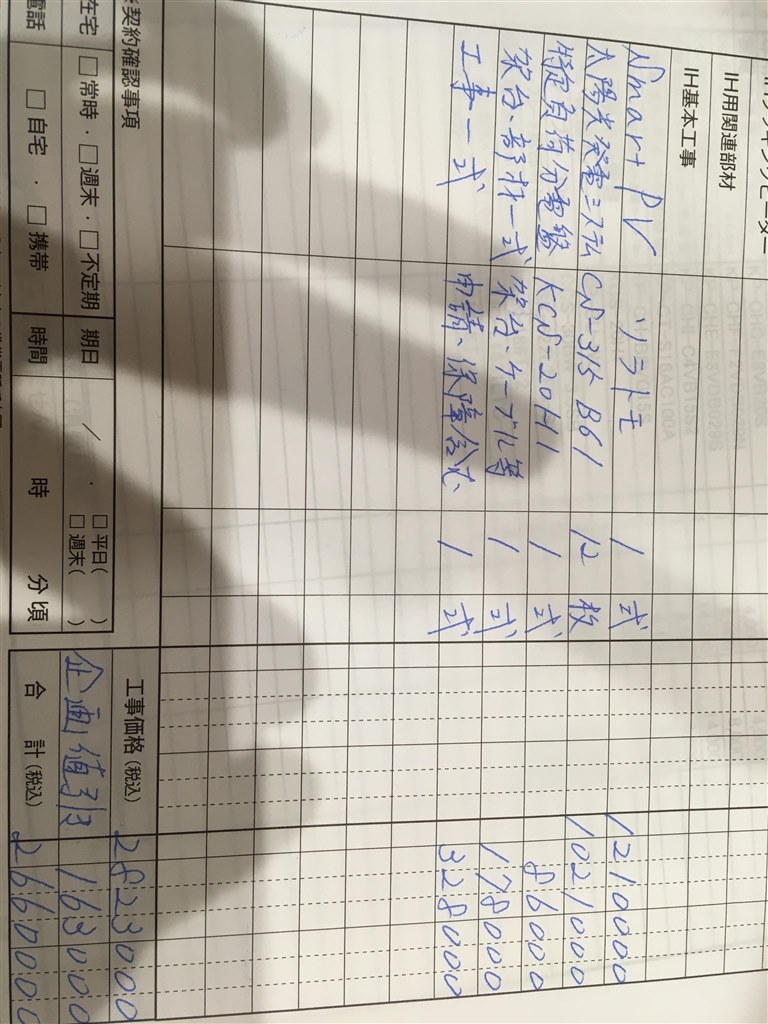 IH用関連部材
IH基本工事
Smart PV ソラトモ 1 式 1210000
太陽光発電システム CN-315B61 12 枚 1021000
特定負荷分電盤 KCN-20H1 1 式 86000
架台、部材一式 架台、ケーブル等 1 式 178000
工事一式 申請、保障含む 1 式 328000
工事価格(税込) 2823000
契約確認事項
企画値引 163000
在宅 □常時・□週末・□不定期 期日 / ・ □平日( ) □週末( )
合計(税込) 2660000
電話 □自宅・□携帯 時間 時 分頃